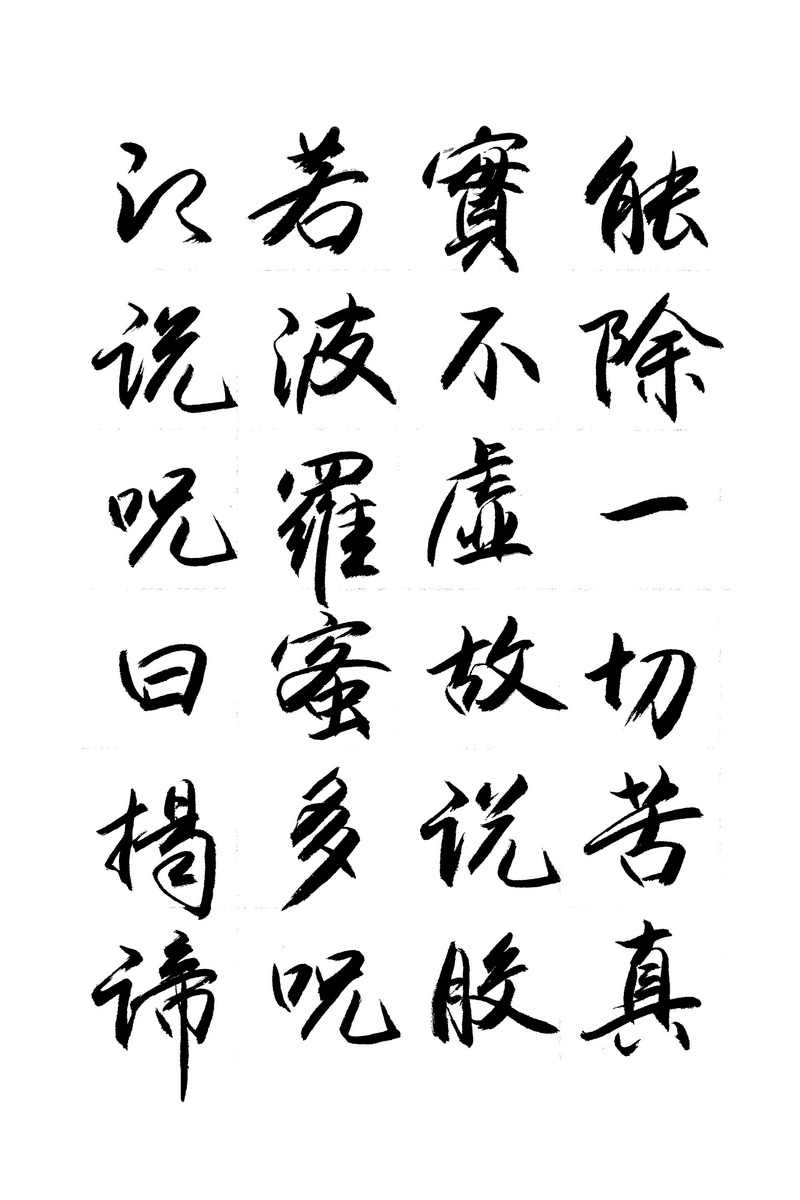 能除一切苦真
實不虛故说般
若波羅蜜多呪
即说呪曰揭
谛